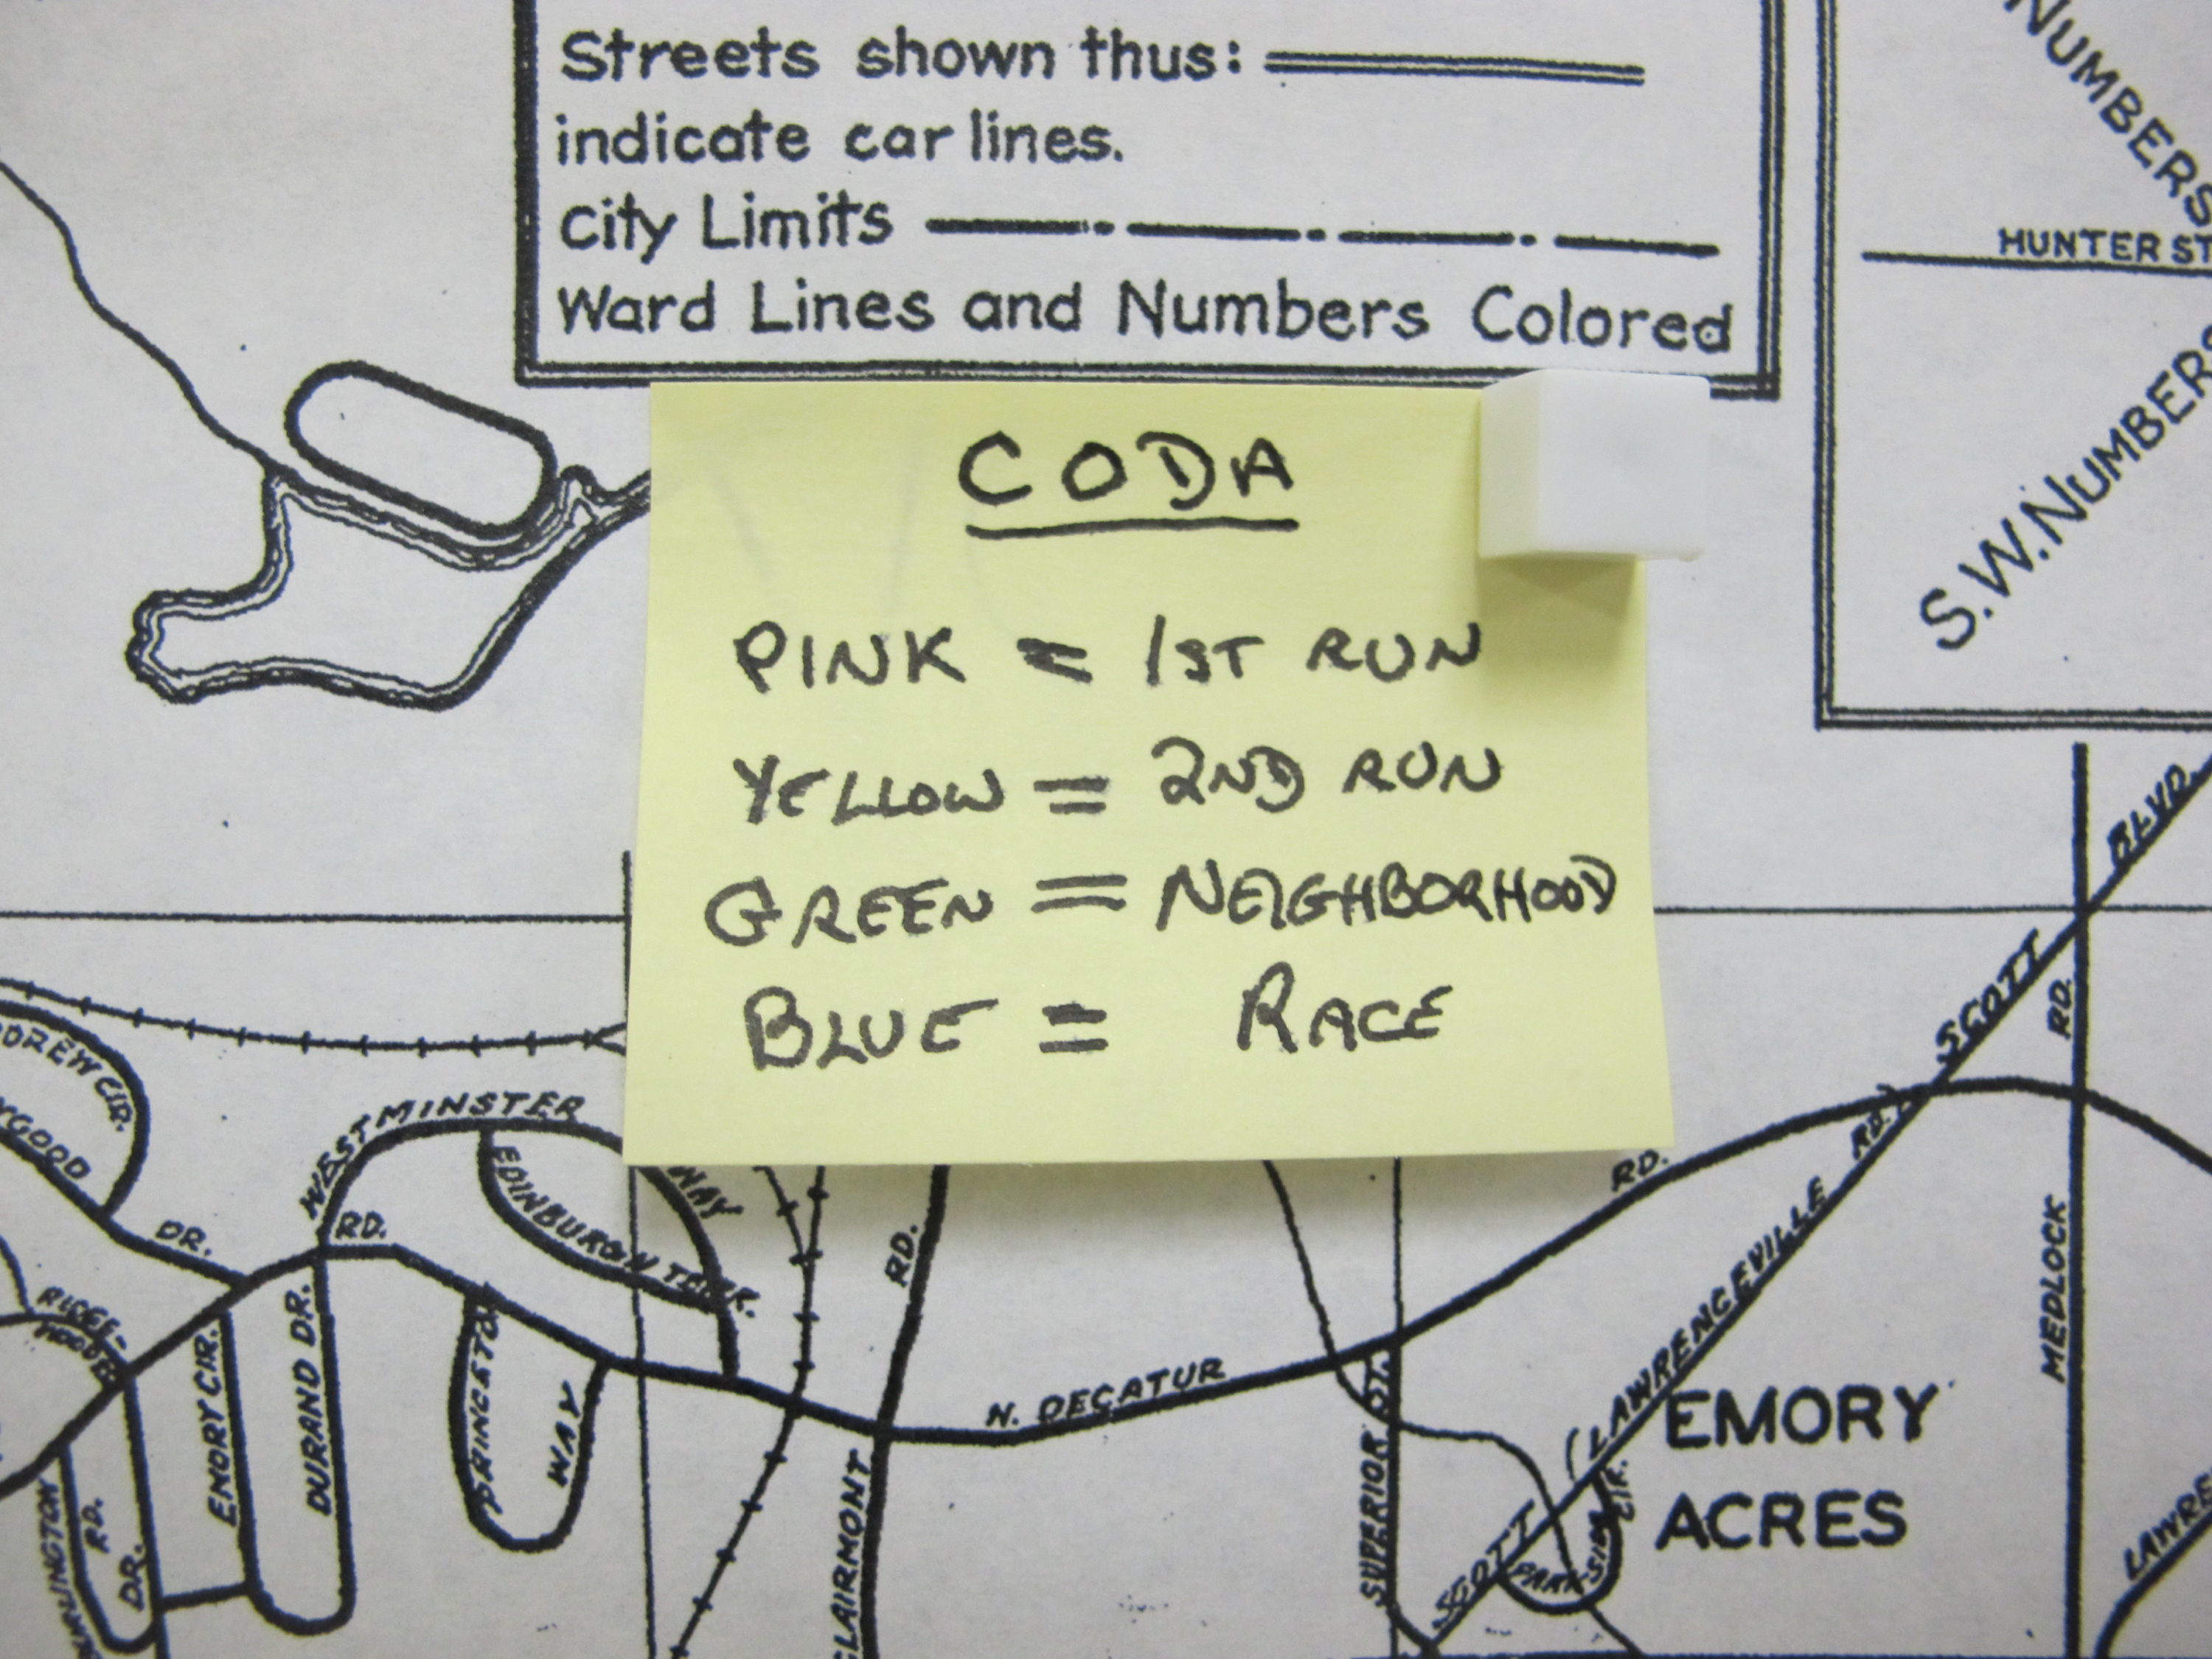 Streets shown thus:
indicate car lines.
City Limits
Ward Lines and Numbers Colored
NUMBERS
HUNTER ST
S.W. NUMBERS
CODA
PINK = 1ST RUN
YELLOW = 2ND RUN
GREEN = NEIGHBORHOOD
BLUE = RACE
BLVD.
SCOTT
RD.
MEDLOCK
DREW CIR.
YGOOD
DR.
WESTMINSTER
WAY
RD.
EDINBURGH TERR.
RD.
RD.
RIDGE-
WOOD
EMORY CIR.
DURAND DR.
PRINCETON
WAY
N. DECATUR
CLAIRMONT
SUPERIOR ST.
(LAWRENCEVILLE RD.)
EMORY
ACRES
SCOTT
PARKSIDE CIR.
ARLINGTON
RD.
DR.
LAWRE